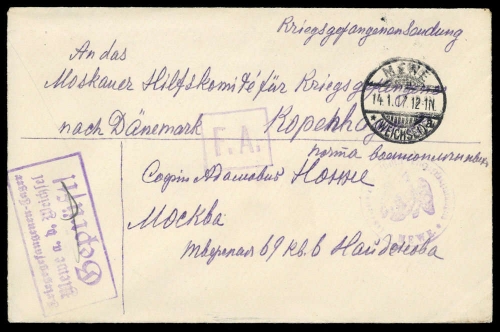 Kriegsgefangenensendung
An das
Moskauer Hilfskomité für Kriegsgefangene
nach Dänemark
Kopenhag
F. A.
MEWE
14.1.17. 12-1N.
* (WEICHSEL) a *
почта военнопленных
Софии Адамовне
Москва
Тверская 69 кв. 6 Найденова
Kriegsgefangenen-Lager
Mewe a. d. Weichsel
Geprüft
MEWE